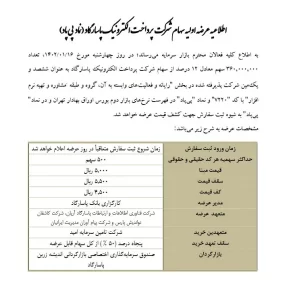 اطلاعیه عرضه اولیه سهام شرکت پرداخت الکترونیک پاسارگاد (نماد پی‌پاد)
به اطلاع کلیه فعالان محترم بازار سرمایه می‌رساند؛ در روز چهارشنبه مورخ ۱۴۰۲/۰۱/۱۶، تعداد
۳۶۰,۰۰۰,۰۰۰ سهم معادل ۱۲ درصد از سهام شرکت پرداخت الکترونیک پاسارگاد به عنوان ششصد و
یک‌مین شرکت پذیرفته شده در بخش "رایانه و فعالیت‌های وابسته به آن، گروه و طبقه مشاوره و تهیه نرم
افزار" با کد "۷۲۲۰" و نماد "پی‌پاد" در فهرست نرخ‌های بازار دوم بورس اوراق بهادار تهران و در نماد"
پی‌پاد" به شیوه ثبت سفارش جهت کشف قیمت عرضه خواهد شد.
مشخصات عرضه به شرح زیر می‌باشد:
زمان ورود ثبت سفارش زمان شروع ثبت سفارش متعاقباً در روز عرضه اعلام خواهد شد
حداکثر سهمیه هر کد حقیقی و حقوقی ۵۰۰ سهم
قیمت مبنا ۵,۰۰۰ ریال
سقف قیمت ۵,۵۰۰ ریال
کف قیمت ۴,۵۰۰ ریال
مدیر عرضه کارگزاری بانک پاسارگاد
متعهد عرضه شرکت فناوری اطلاعات و ارتباطات پاسارگاد آریان، شرکت کاشفان
نواندیش پارس و شرکت پیام آوران مدیریت ایرانیان
متعهدین خرید شرکت تامین سرمایه امید
سقف تعهد خرید پنجاه درصد (۵۰ %) از کل سهام قابل عرضه
بازارگردان صندوق سرمایه‌گذاری اختصاصی بازارگردانی اندیشه زرین
پاسارگاد